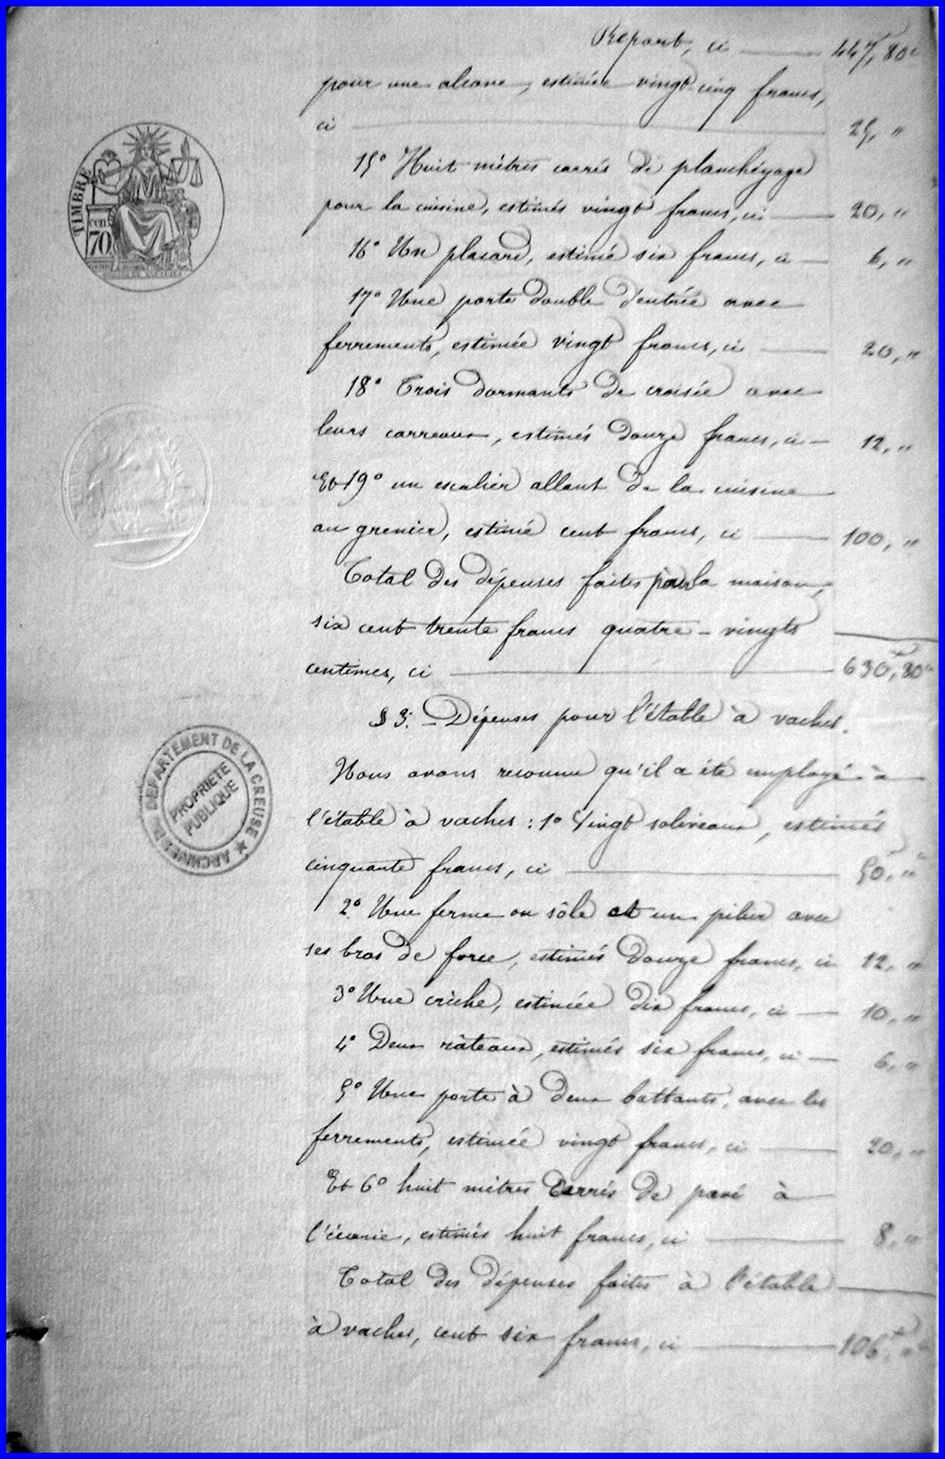 Report, ci — 447f,80c
pour une alcove, estimée vingt cinq francs,
ci — 25, "
15° Huit mètres carrés de planchéyage
pour la cuisine, estimés vingt francs, ci — 20, "
16° Un placard, estimé six francs, ci — 6, "
17° Une porte double d'entrée avec
ferrements, estimée vingt francs, ci — 20, "
18° Trois dormants de croisée avec
leurs carreaux, estimés douze francs, ci — 12, "
Et 19° un escalier allant de la cuisine
au grenier, estimé cent francs, ci — 100, "
Total des dépenses faites pour la maison,
six cent trente francs quatre-vingts
centimes, ci — 630f,80c
§ 3. — Dépenses pour l'étable à vaches.
Nous avons reconnu qu'il a été employé à
l'étable à vaches : 1° Vingt soliveaux, estimés
cinquante francs, ci — 50, "
2° Une ferme ou sôle et un pilier avec
ses bras de force, estimés douze francs, ci 12, "
3° Une crèche, estimée dix francs, ci — 10, "
4° Deux râteaux, estimés six francs, ci — 6, "
5° Une porte à deux battants, avec les
ferrements, estimée vingt francs, ci — 20, "
Et 6° huit mètres carrés de pavé à
l'écurie, estimés huit francs, ci — 8, "
Total des dépenses faites à l'étable
à vaches, cent six francs, ci — 106f, "c
TIMBRE
cen
70
ARCHIVES DU DEPARTEMENT DE LA CREUSE
PROPRIETE
PUBLIQUE